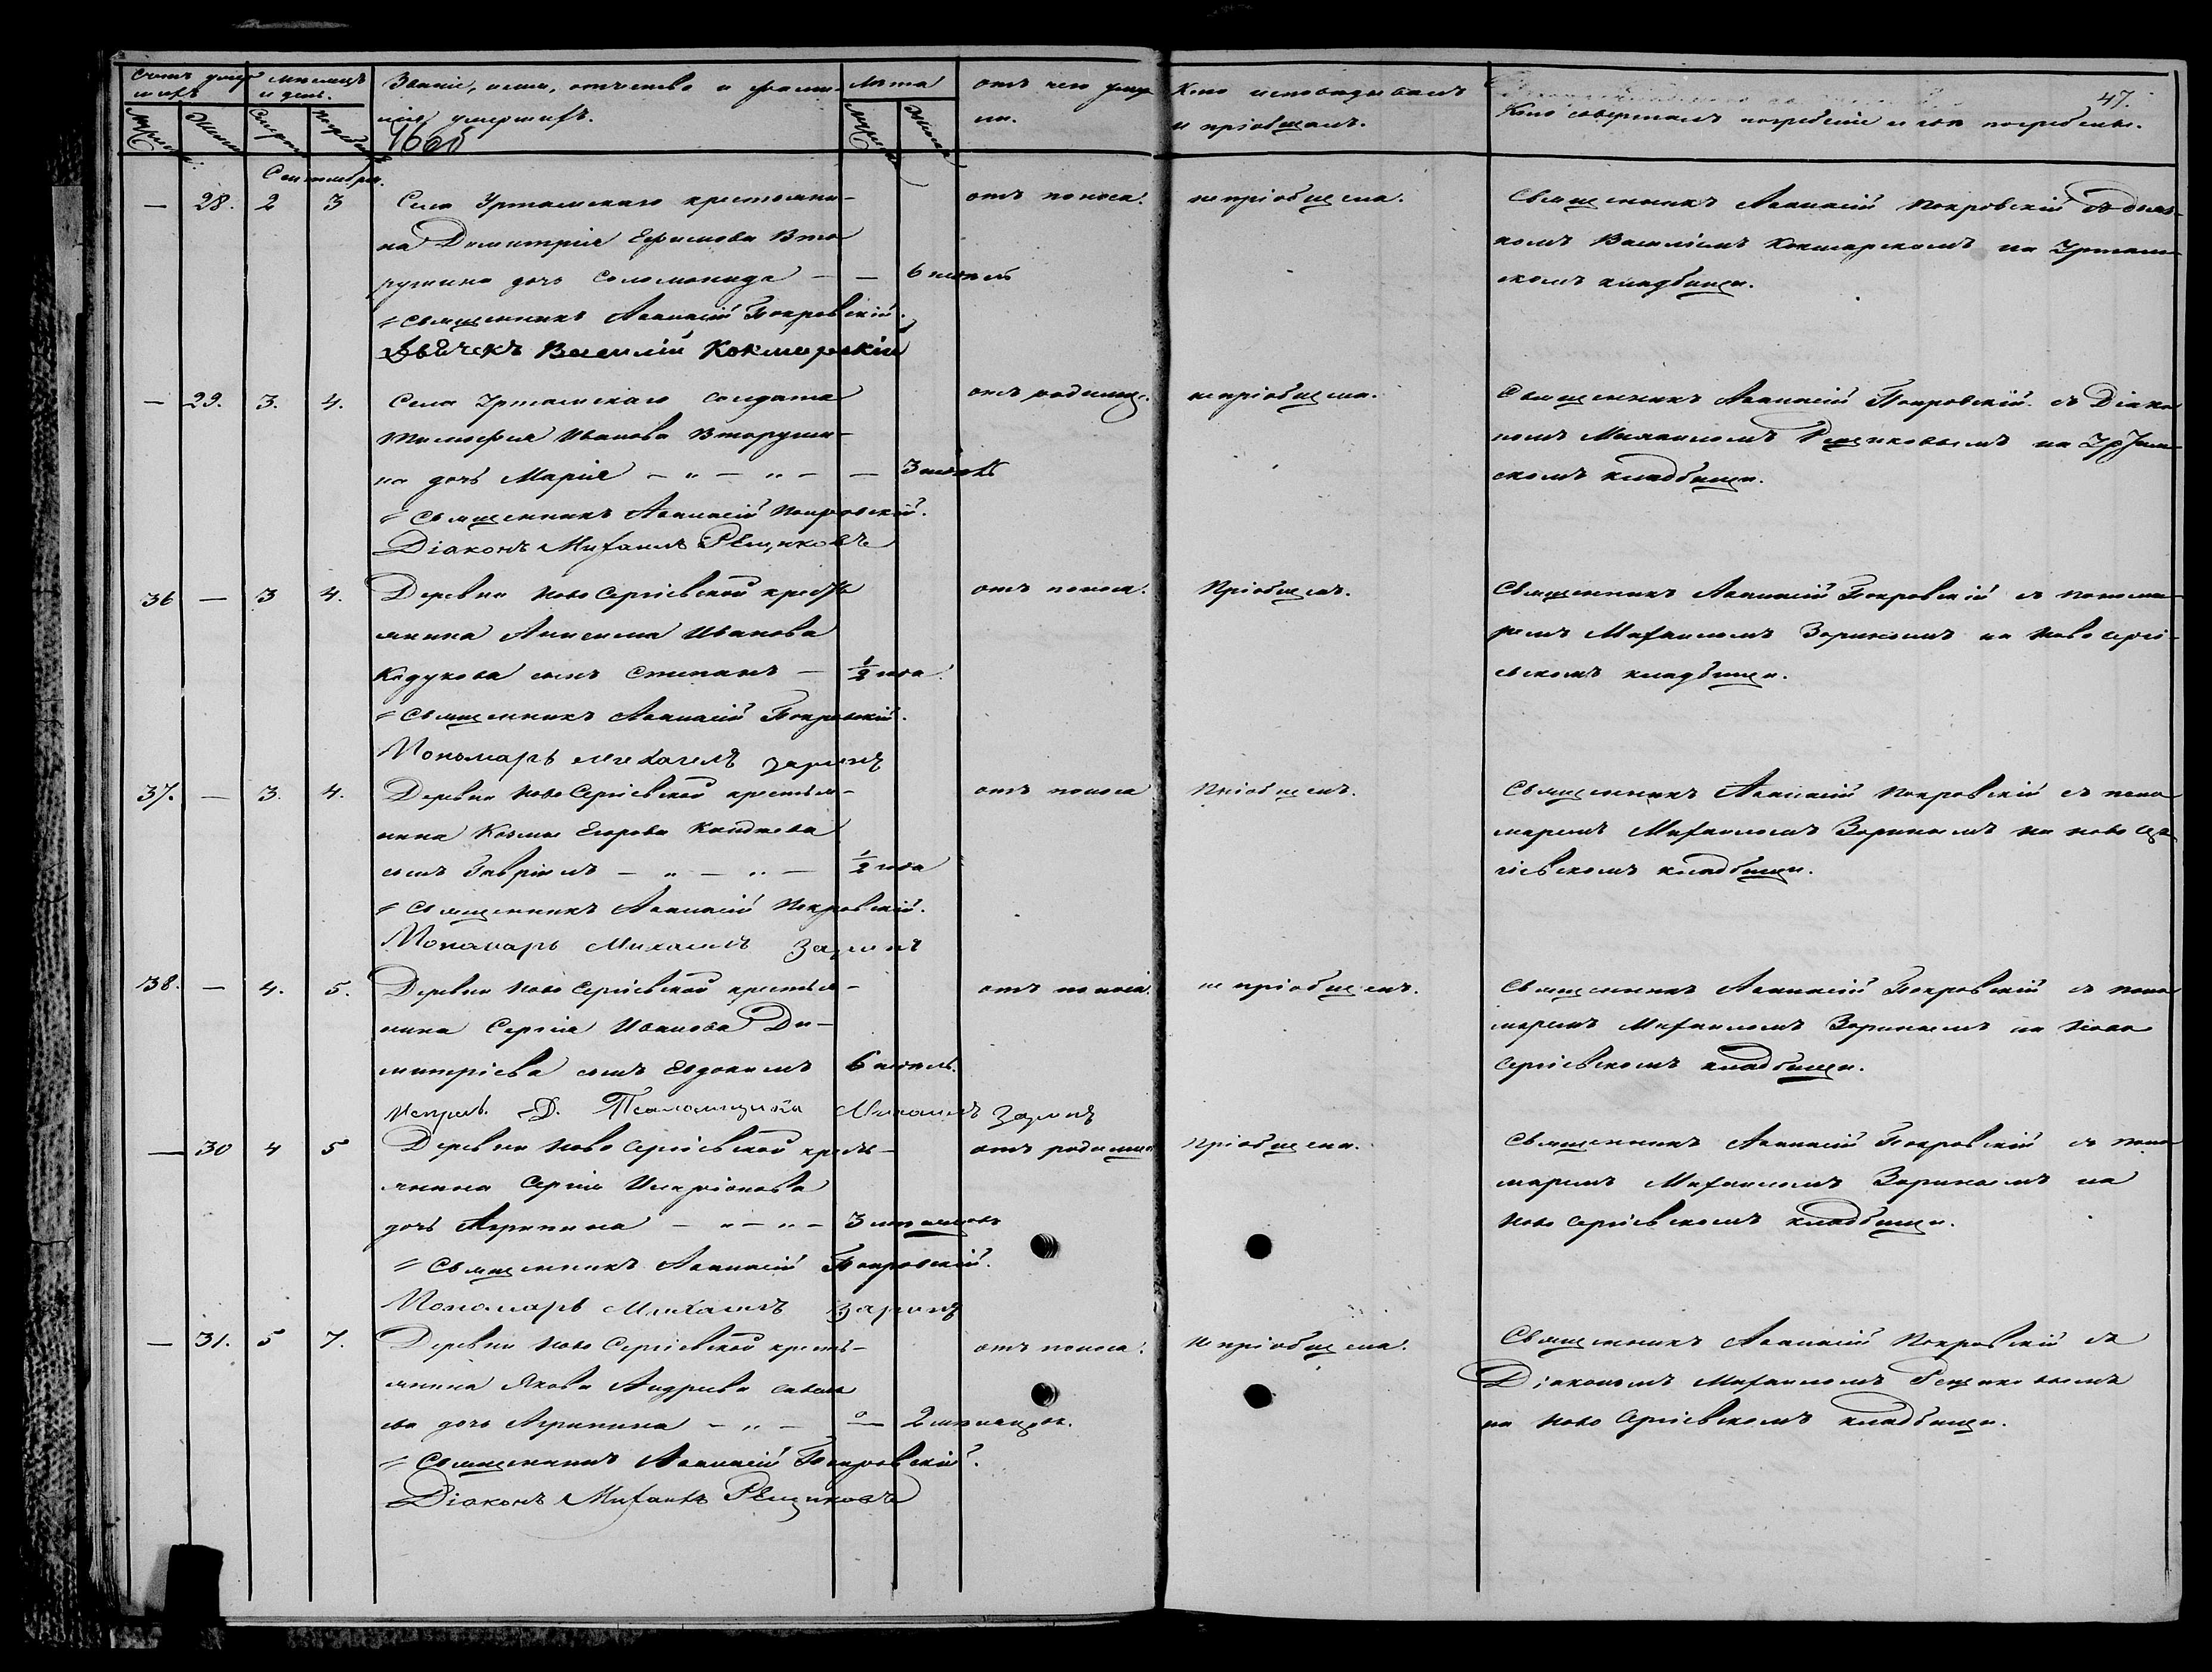 Счетъ умер
шихъ
Мѣсяцъ
и день.
Званіе, имя, отчество и фами-
лія умершихъ.
Лѣта
отъ чего умер
ли.
Кто исповѣдывалъ
и пріобщалъ.
47.
Кто совершалъ погребеніе и гдѣ погребены.
Сентября.
— 28. 2 3 Села Уртамскаго крестьяни-
на Димитрія Ефимова Вто
ругина дочь Соломонида — — 6 недѣль
отъ поноса.
непріобщена.
Священникъ Аѳанасій Покровскій съ дьяч-
комъ Василіемъ Кокшарскимъ на Уртам
скомъ кладбищѣ.
Священникъ Аѳанасій Покровскій.
Дьячекъ Василій Кокшарскій
— 29. 3. 4. Села Уртамскаго солдата
Тимофея Иванова Вторуши-
на дочь Марія — „ — „ — — 3 недѣль
отъ родимца.
непріобщена.
Священникъ Аѳанасій Покровскій съ Діако
номъ Михаиломъ Рѣщиковымъ на Уртам
скомъ кладбищѣ.
Священникъ Аѳанасій Покровскій.
Діаконъ Михаилъ Рѣщиковъ
36 — 3 4. Деревни Ново Сергіевской кресть
янина Анисима Иванова
Кадукова сынъ Степанъ — ½ года
отъ поноса.
Пріобщенъ.
Священникъ Аѳанасій Покровскій съ понома
ремъ Михаиломъ Заринымъ на Ново Сергі-
евскомъ кладбищѣ.
Священникъ Аѳанасій Покровскій.
Пономарь Михаилъ Заринъ
37. — 3. 4. Деревни Ново Сергіевской крестья-
нина Козмы Егорова Кандаева
сынъ Гавріилъ — „ — „ — ½ года
отъ поноса
Пріобщенъ.
Священникъ Аѳанасій Покровскій съ поно
маремъ Михаиломъ Заринымъ на Ново Сер
гіевскомъ кладбищѣ.
Священникъ Аѳанасій Покровскій.
Пономарь Михаилъ Заринъ
38. — 4. 5. Деревни Ново Сергіевской крестья-
нина Сергія Иванова Ди-
митріева сынъ Евдокимъ 6 недѣль.
отъ поноса.
не пріобщенъ.
Священникъ Аѳанасій Покровскій съ поно
маремъ Михаиломъ Заринымъ на Ново
Сергіевскомъ кладбищѣ.
Исправ. Д. Псаломщика Михаилъ Заринъ
— 30 4 5 Деревни Ново Сергіевской кресть-
янина Сергія Иларіонова
дочь Агрипина — „ — „ — 3 мѣсяцовъ
отъ родимца
пріобщена.
Священникъ Аѳанасій Покровскій съ поно
маремъ Михаиломъ Заринымъ на
Ново Сергіевскомъ кладбищѣ.
Священникъ Аѳанасій Покровскій.
Пономарь Михаилъ Заринъ
— 31. 5 7. Деревни Ново Сергіевской кресть-
янина Якова Андреева Савель
ева дочь Агрипина — „ — — 2 мѣсяцов.
отъ поноса.
Непріобщена.
Священникъ Аѳанасій Покровскій съ
Діакономъ Михаиломъ Рѣщиковымъ
на Ново Сергіевскомъ кладбищѣ.
Священникъ Аѳанасій Покровскій.
Діаконъ Михаилъ Рѣщиковъ